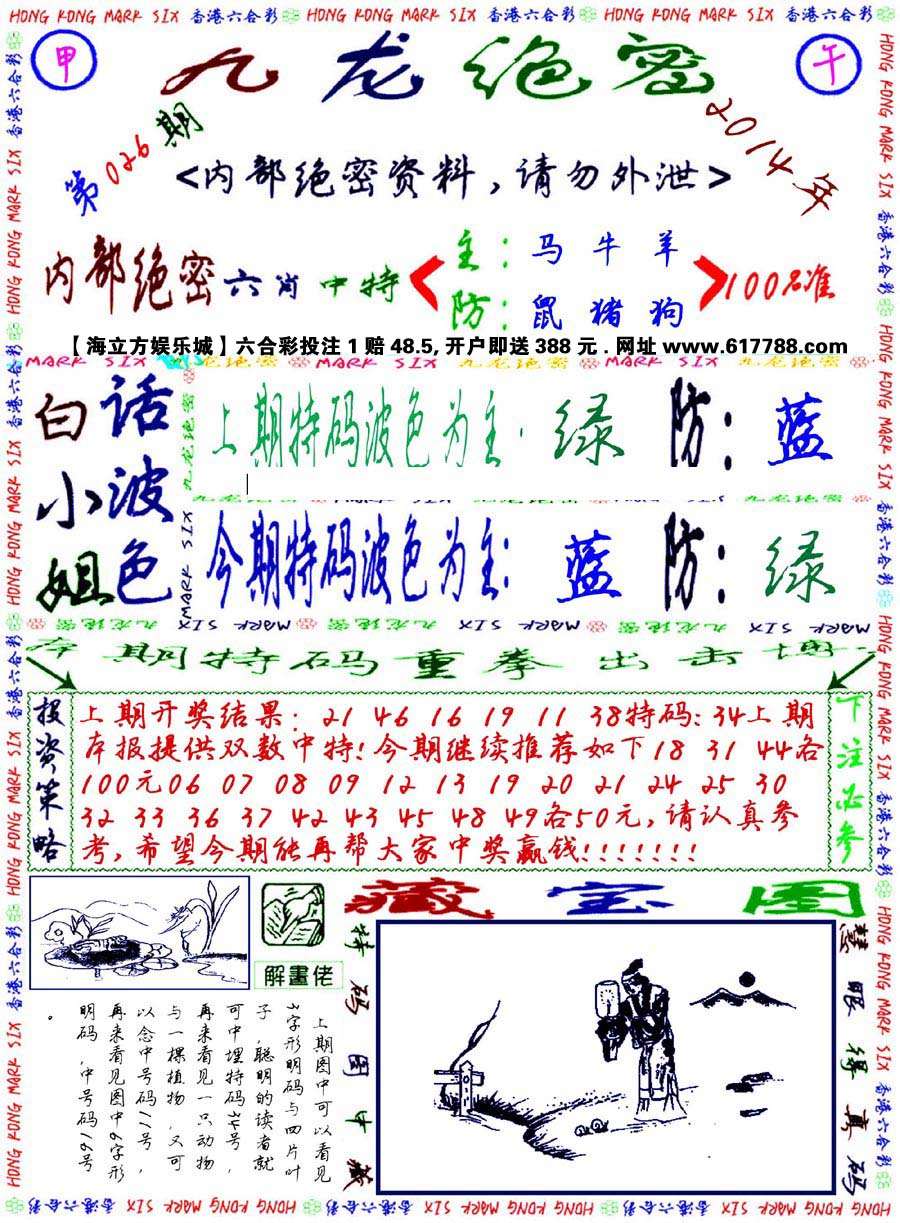 HONG KONG MARK SIX 香港六合彩 HONG KONG MARK SIX 香港六合彩 HONG KONG MARK SIX 香港六合彩
甲
九龙绝密
午
第026期
2014年
<内部绝密资料,请勿外泄>
内部绝密六肖中特
主:马牛羊
防:鼠猪狗
100%准
【海立方娱乐城】六合彩投注1赔48.5,开户即送388元.网址www.617788.com
白小姐
话波色
上期特码波色为主:绿 防:蓝
今期特码波色为主:蓝 防:绿
本期特码重拳出击博
投资策略
上期开奖结果:21 46 16 19 11 38特码:34上期
本报提供双数中特!今期继续推荐如下18 31 44各
100元06 07 08 09 12 13 19 20 21 24 25 30
32 33 36 37 42 43 45 48 49各50元,请认真参
考,希望今期能再帮大家中奖赢钱!!!!!!!
下注必参
解畫佬
上期图中可以看见
3字形明码与四片叶
子,聪明的读者就
可中埋特码34号,
再来看见一只动物
与一棵植物,又可
以念中号码11号,
再来看见图中9字形
明码,中号码19号
。
藏宝图
特码图中藏
慧眼得真码